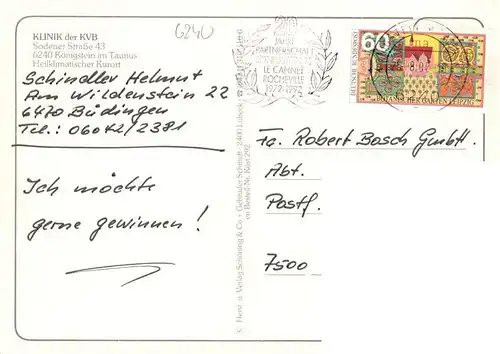 KLINIK der KVB
Sodener Straße 43
6240 Königstein im Taunus
Heilklimatischer Kurort
Schindler Helmut
Am Wildenstein 22
6470 Büdingen
Tel.: 06042/2381
Ich möchte
gerne gewinnen!
6240
JAHRE
PARTNERSCHAFT
LE CANNET
1972-1992
60
DEUTSCHE BUNDESPOST
BOTANISCHER GARTEN LEIPZIG
© Herst. u. Verlag Schöning & Co + Gebrüder Schmidt · 2400 Lübeck
Bestell-Nr. Köst 292
Fa. Robert Bosch GmbH.
Abt.
Postf.
7500